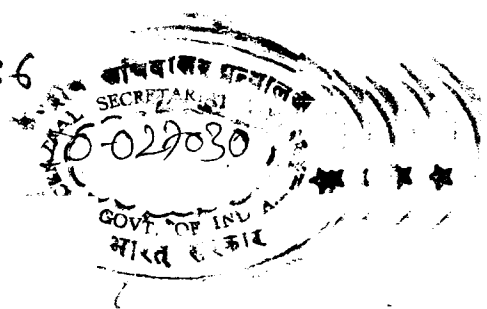 :6
सचिवालय ग्रन्थालय
CENTRAL SECRETARIAT
6-027030
GOVT. OF INDIA
भारत सरकार